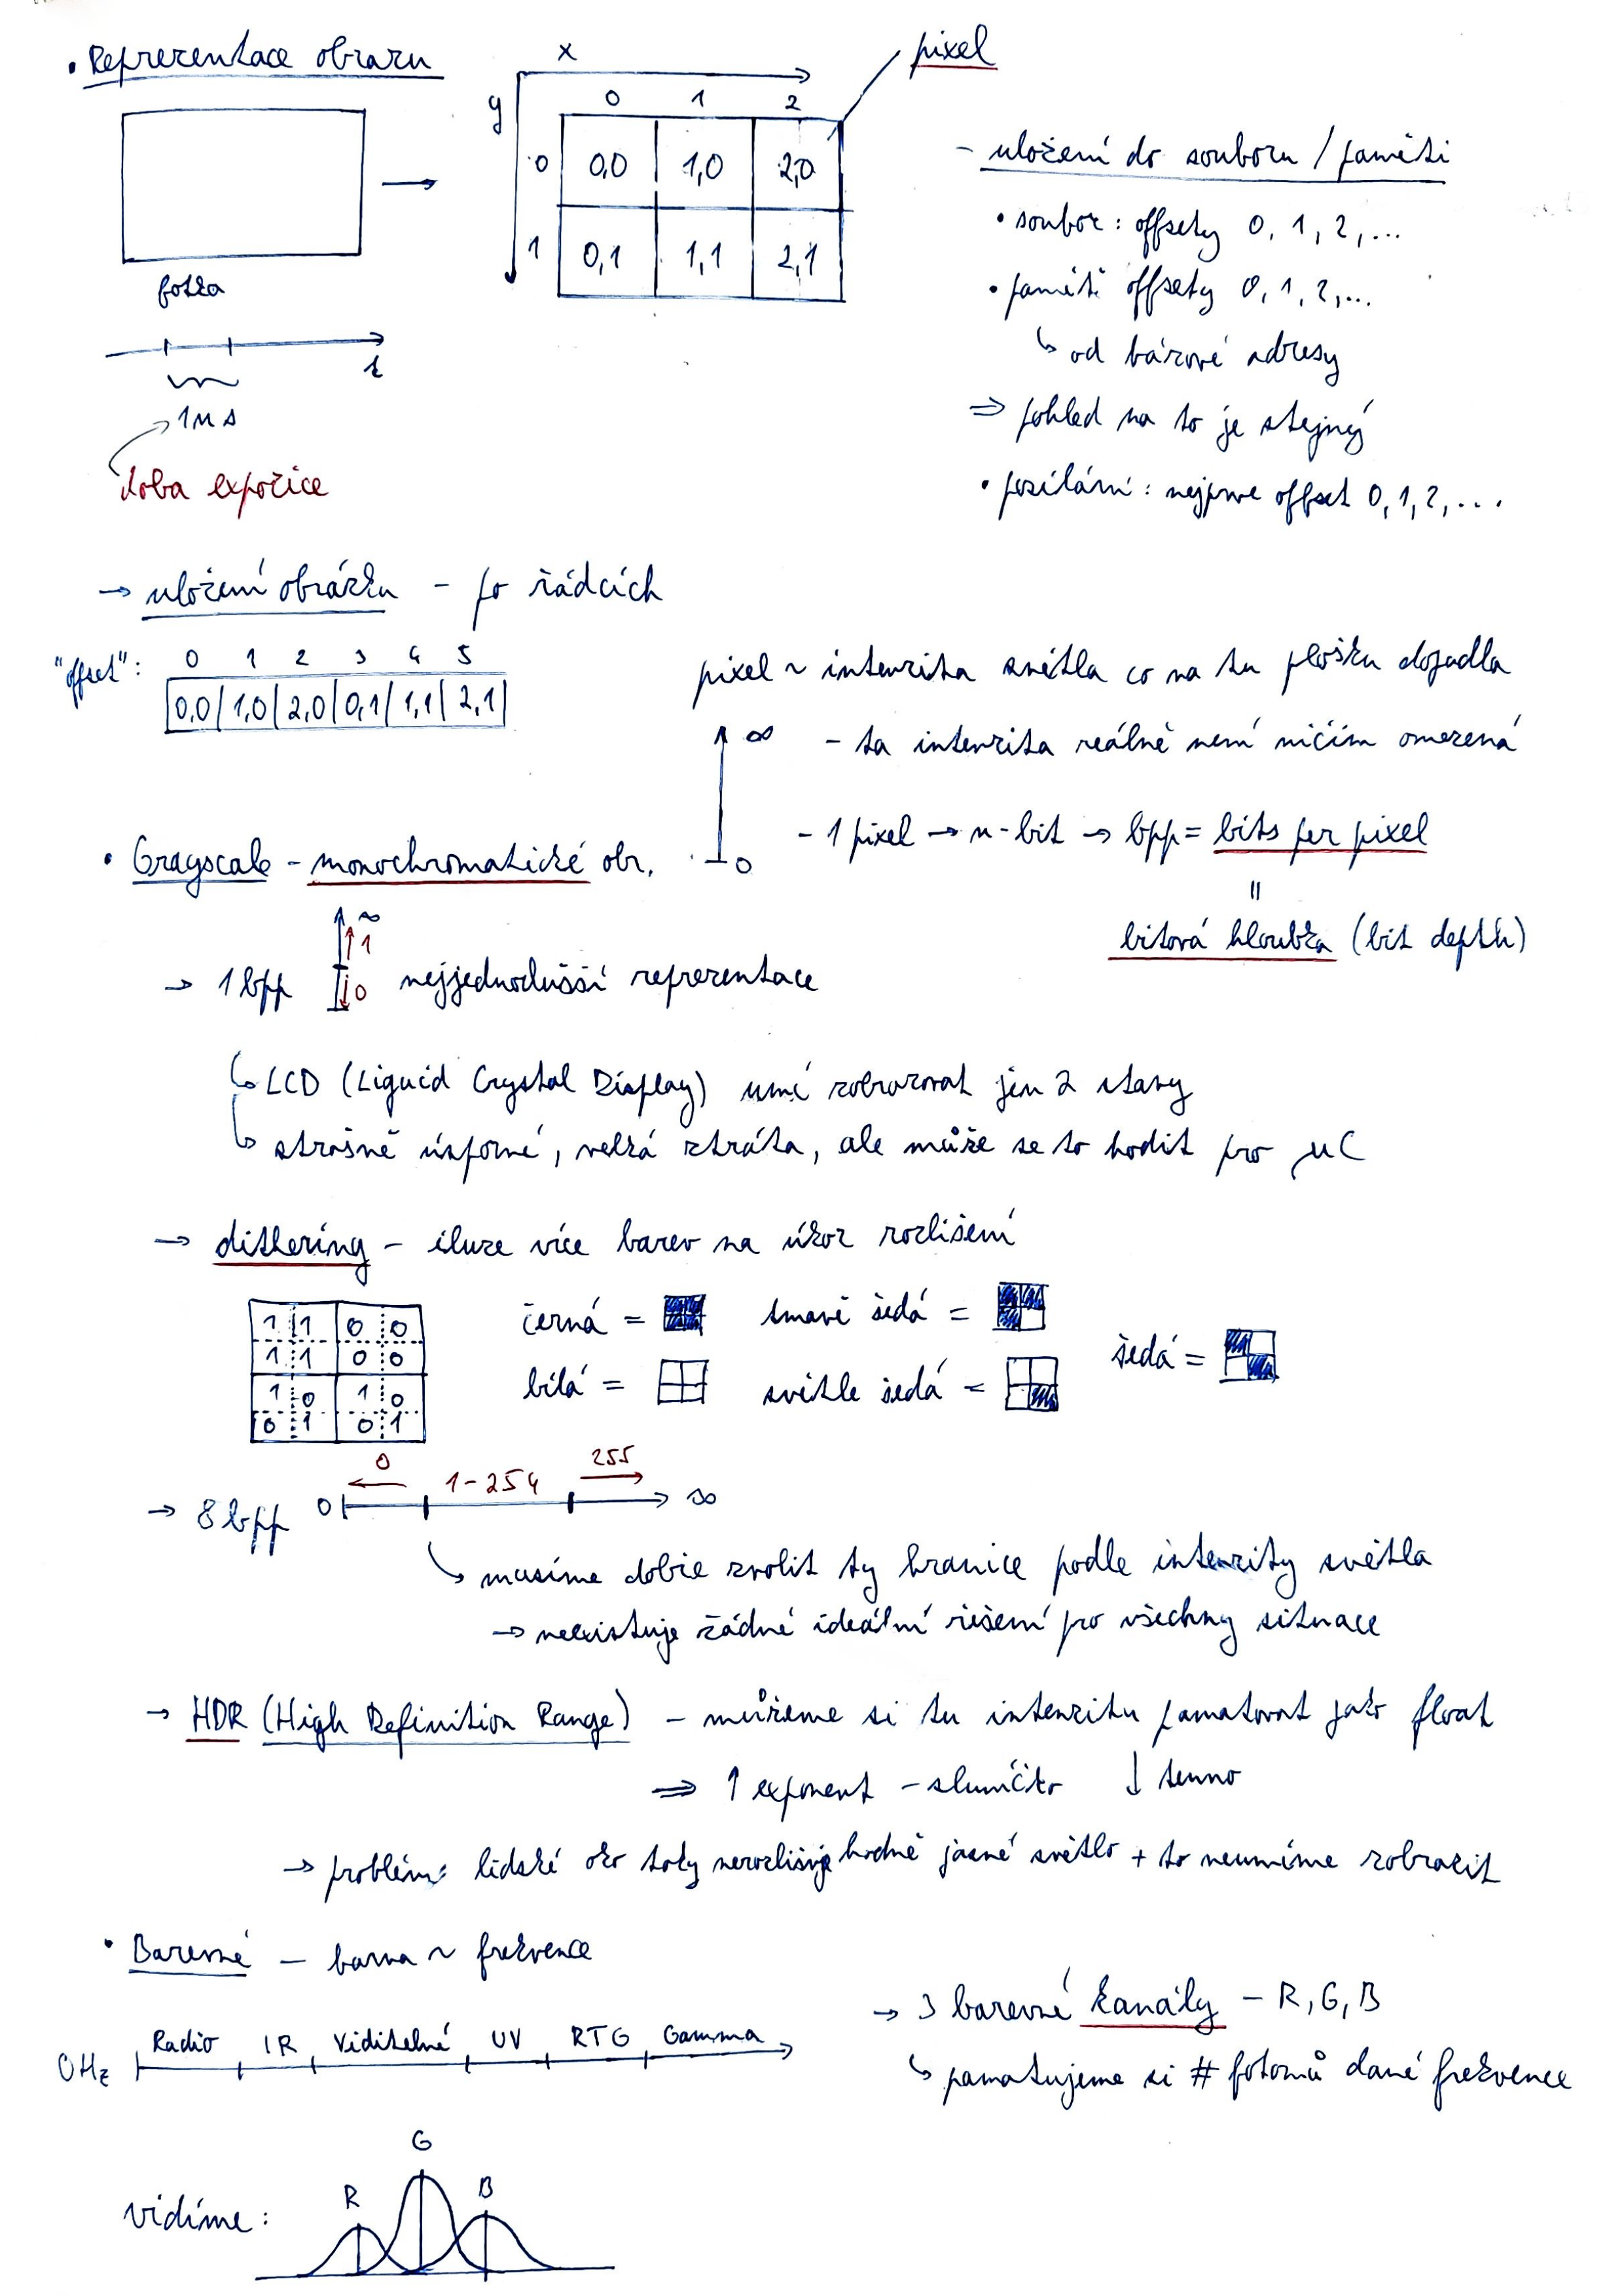 • Reprezentace obrazu
x
y
0 1 2
0 0,0 1,0 2,0
1 0,1 1,1 2,1
pixel
fotka
t
1ms
doba expozice
- uložení do souboru / paměti
• soubor: offsety 0, 1, 2, ...
• paměť: offsety 0, 1, 2, ...
↳ od bázové adresy
⇒ pohled na to je stejný
• posílání: nejprve offset 0, 1, 2, ...
→ uložení obrázku - po řádcích
"offset": 0 1 2 3 4 5
0,0 | 1,0 | 2,0 | 0,1 | 1,1 | 2,1
pixel ~ intenzita světla co na tu plošku dopadla
∞ - ta intenzita reálně není ničím omezená
0
- 1 pixel → n-bit → bpp = bits per pixel
=
bitová hloubka (bit depth)
• Grayscale - monochromatické obr.
∞
↑ 1
→ 1 bpp ↓ 0 nejjednodušší reprezentace
↳ LCD (Liquid Crystal Display) umí zobrazovat jen 2 stavy
↳ strašně úsporné, velká ztráta, ale může se to hodit pro μC
→ dithering - iluze více barev na úkor rozlišení
1 1 0 0
1 1 0 0
1 0 1 0
0 1 0 1
černá = tmavě šedá =
šedá =
bílá = světle šedá =
0 1-254 255
→ 8 bpp 0 ∞
↳ musíme dobře zvolit ty hranice podle intenzity světla
→ neexistuje žádné ideální řešení pro všechny situace
→ HDR (High Definition Range) - můžeme si tu intenzitu pamatovat jako float
⇒ ↑ exponent - sluníčko ↓ temno
→ problém: lidské oko tolik nerozlišuje hodně jasné světlo + to neumíme zobrazit
• Barevné - barva ~ frekvence
→ 3 barevné kanály - R, G, B
↳ pamatujeme si # fotonů dané frekvence
0Hz Radio IR Viditelné UV RTG Gamma
vidíme: R G B